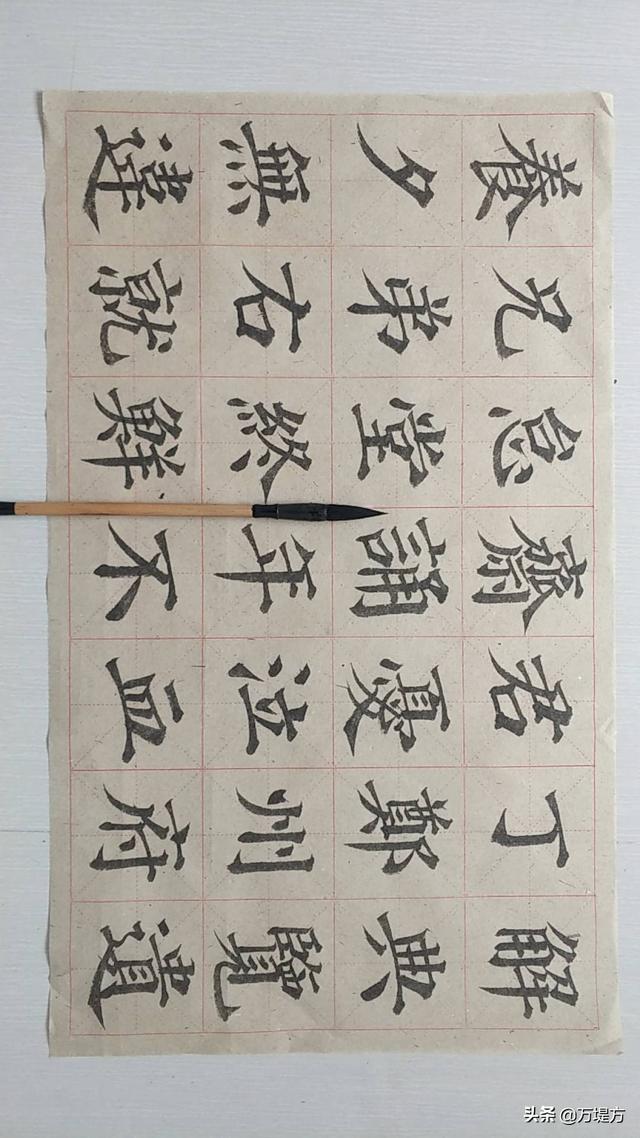 解典覽遺
丁鄭州府
君憂泣血
齋誦年不
怠堂終鮮
兄弟右就
養夕無違
头条 @万堤方